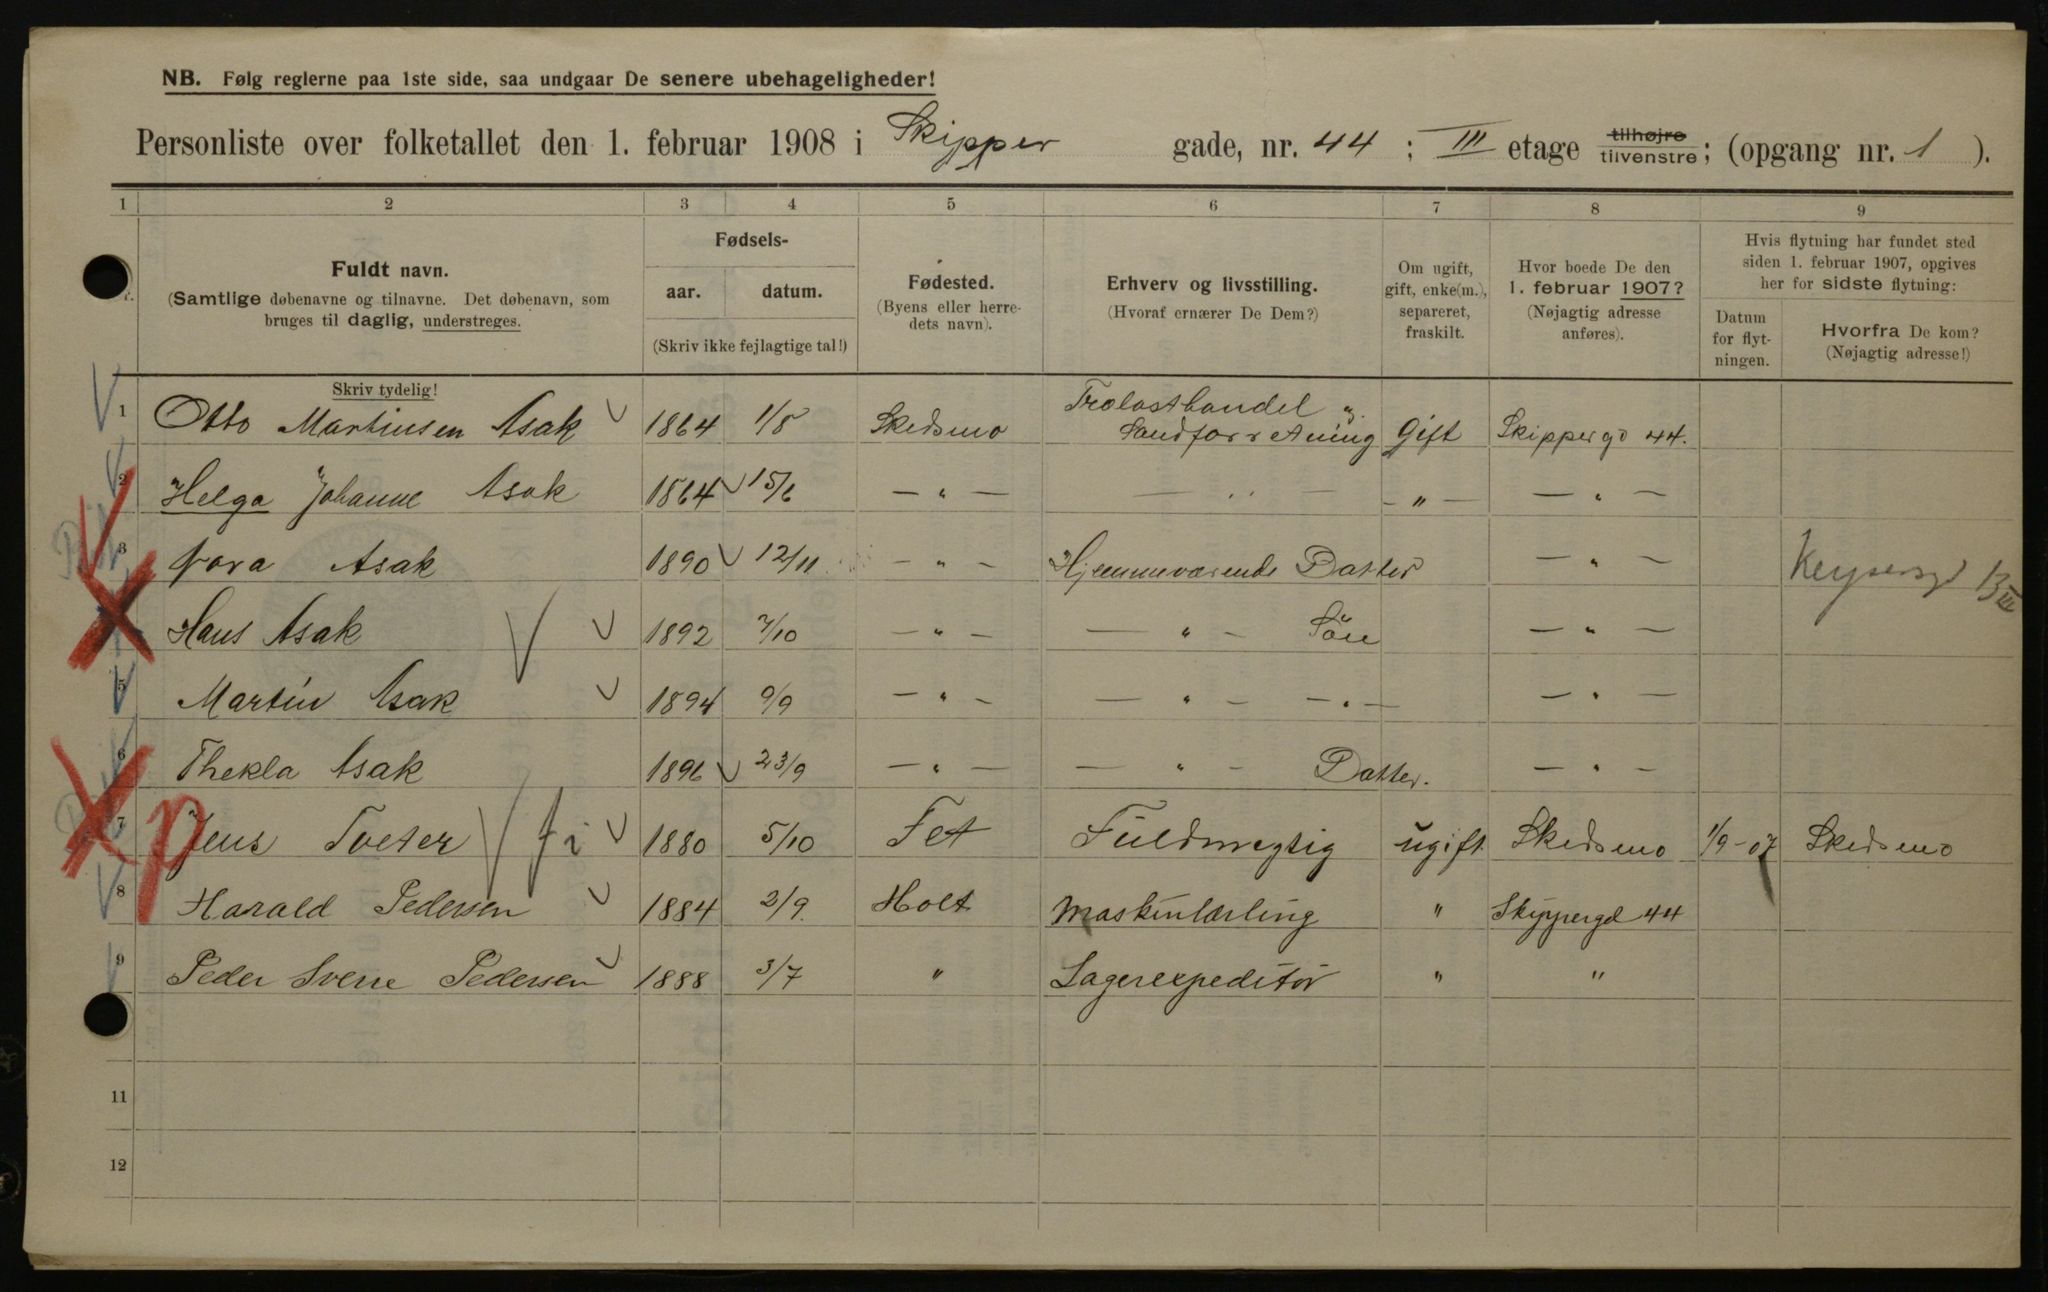 NB. Følg reglerne paa 1ste side, saa undgaar De senere ubehageligheder!
Personliste over folketallet den 1. februar 1908 i Skipper gade, nr. 44 ; III etage tilhøjre tilvenstre ; (opgang nr. 1 ).
1 2 3 4 5 6 7 8 9
Fuldt navn.
(Samtlige døbenavne og tilnavne. Det døbenavn, som
bruges til daglig, understreges.
Fødsels-
aar. datum.
(Skriv ikke fejlagtige tal!)
Fødested.
(Byens eller herre-
dets navn).
Erhverv og livsstilling.
(Hvoraf ernærer De Dem?)
Om ugift,
gift, enke(m.),
separeret,
fraskilt.
Hvor boede De den
1. februar 1907?
(Nøjagtig adresse
anføres).
Hvis flytning har fundet sted
siden 1. februar 1907, opgives
her for sidste flytning:
Datum
for flyt-
ningen.
Hvorfra De kom?
(Nøjagtig adresse!)
Skriv tydelig!
1 Otto Martinsen Asak 1864 1/8 Skedsmo Trælasthandel Gift Skippergd 44.
Sandforretning
2 Helga Johanne Asak 1864 15/6 — " — — " — — " — — " —
3 Nora Asak 1890 12/11 — " — Hjemmeværende Datter — " — Keysersgd 13 III
Hans Asak 1892 7/10 — " — — " — Sön — " —
5 Martin Asak 1894 9/9 — " — — " — — " — — " —
6 Thekla Asak 1896 23/9 — " — — " — Datter. — " —
7 Jens Tveter fi 1880 5/10 Fet Fuldmægtig ugift Skedsmo 1/9-07 Skedsmo
p
8 Harald Pedersen 1884 2/9. Holt Maskinlærling " Skippergd 44
9 Peder Sverre Pedersen 1888 3/7 " Lagerexpeditör " "
11
12